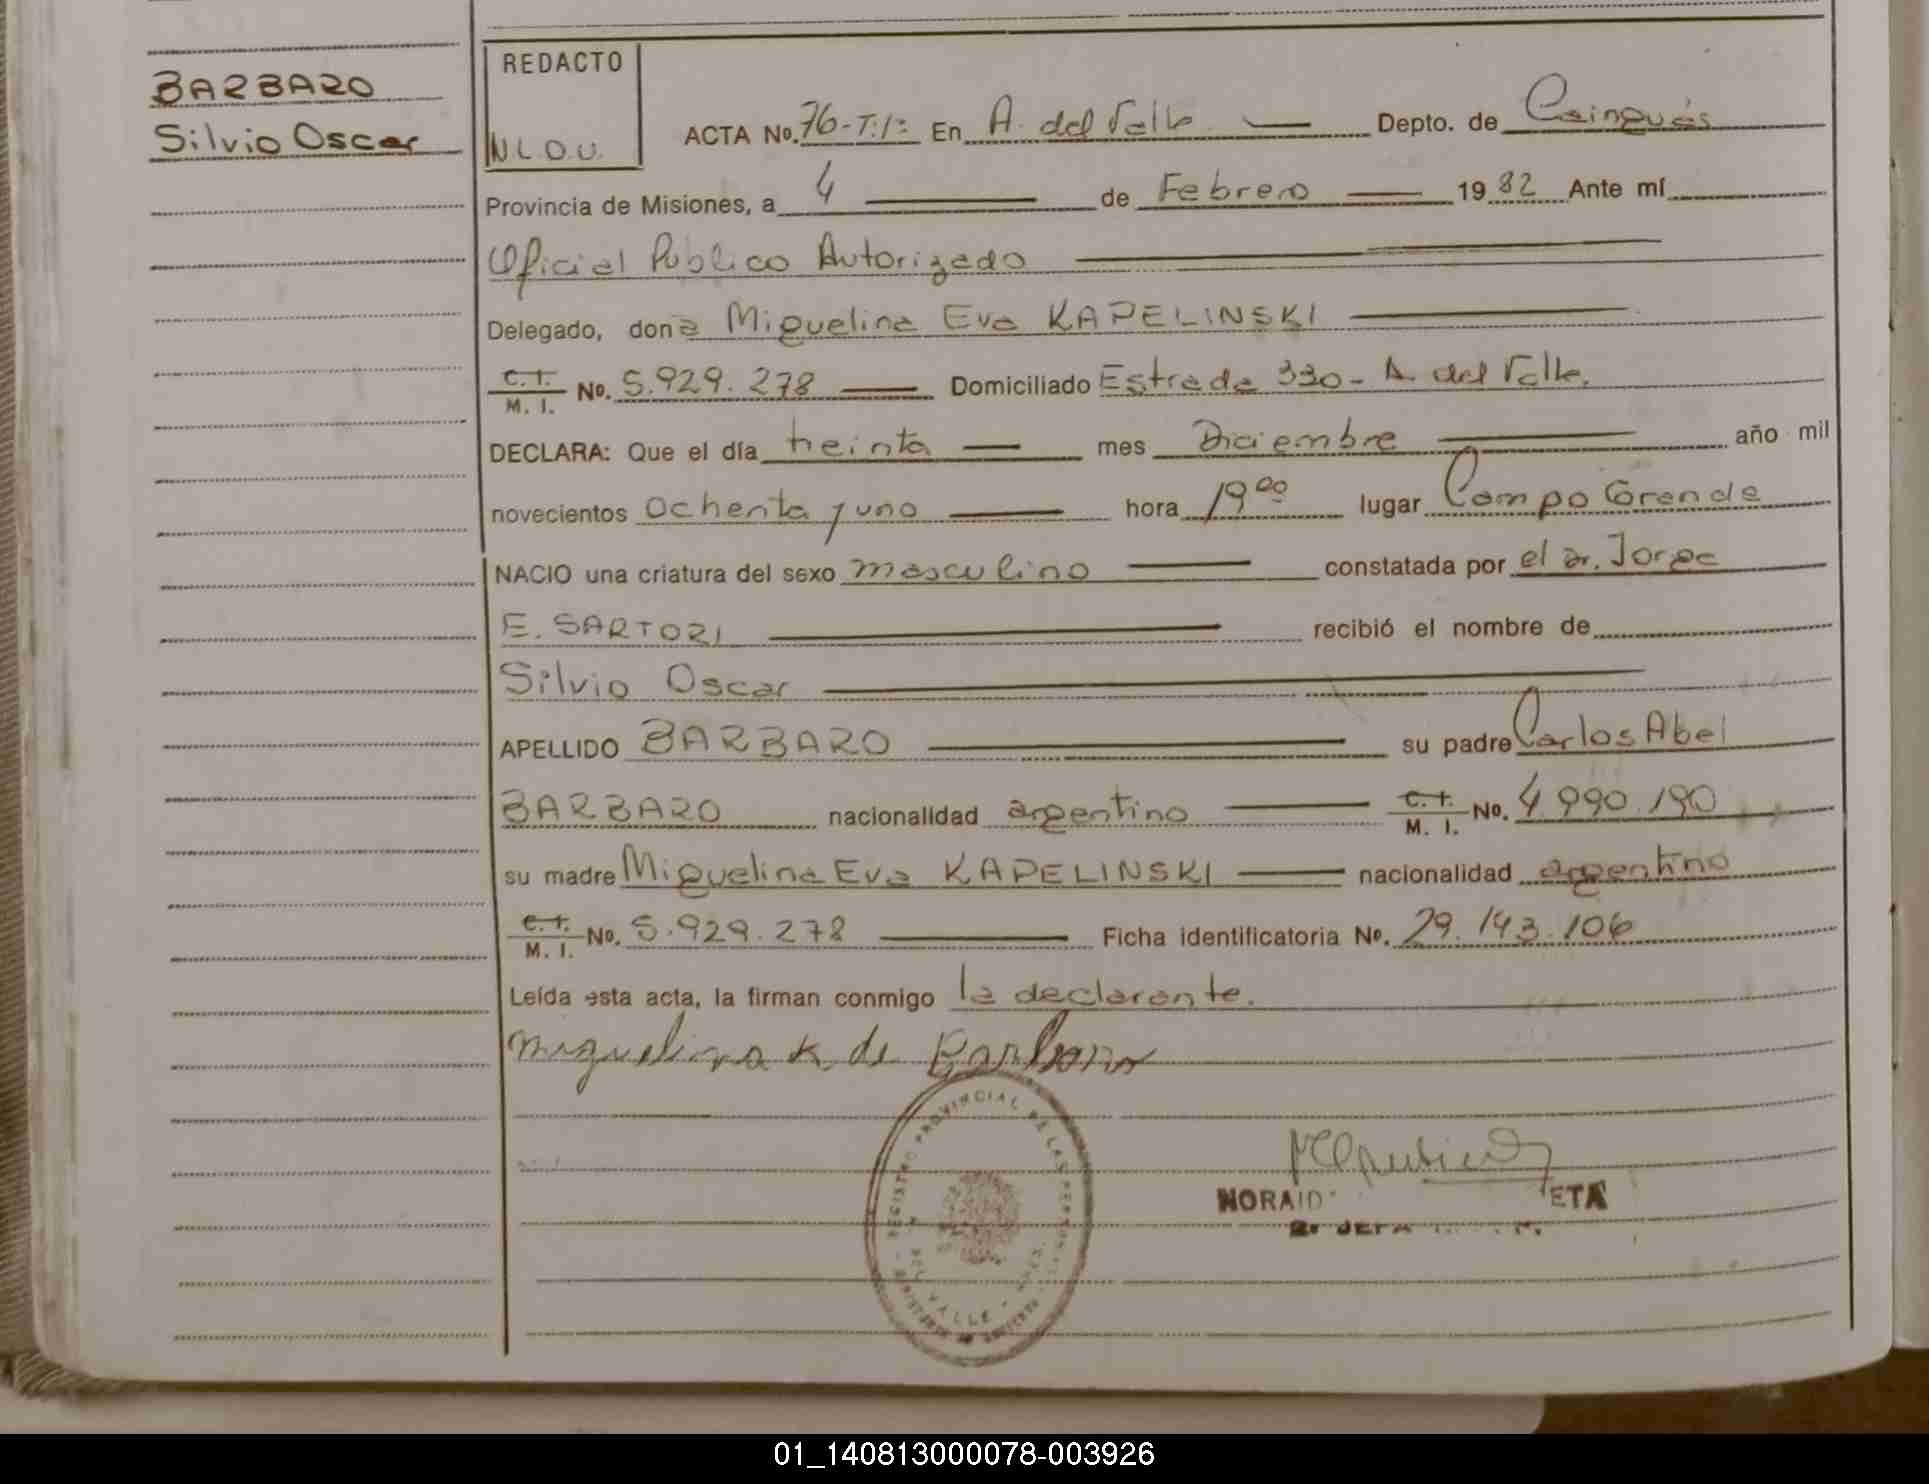 BARBARO
Silvio Oscar
REDACTO
N.L.O.U.
ACTA No. 76-T:1º En A. del Valle Depto. de Cainguás
Provincia de Misiones, a 4 de Febrero 1982 Ante mí
Oficial Publico Autorizado
Delegado, dona Miguelina Eva KAPELINSKI
C. I. M. I. No. 5.929.278 Domiciliado Estrada 330- A. del Valle.
DECLARA: Que el día treinta mes Diciembre año mil
novecientos ochenta y uno hora 19 00 lugar Campo Grande
NACIO una criatura del sexo masculino constatada por el Dr. Jorge
E. SARTORI recibió el nombre de
Silvio Oscar
APELLIDO BARBARO su padre Carlos Abel
BARBARO nacionalidad argentino C. I. M. I. No. 4.990.190
su madre Miguelina Eva KAPELINSKI nacionalidad argentino
C. I. M. I. No. 5.929.278 Ficha identificatoria No. 29.143.106
Leída esta acta, la firman conmigo la declarante.
Miguelina K de Barbaro
REGISTRO PROVINCIAL DE LAS PERSONAS
DEL VALLE - MNES.
NORAID ETA
2º JEFA
01_140813000078-003926